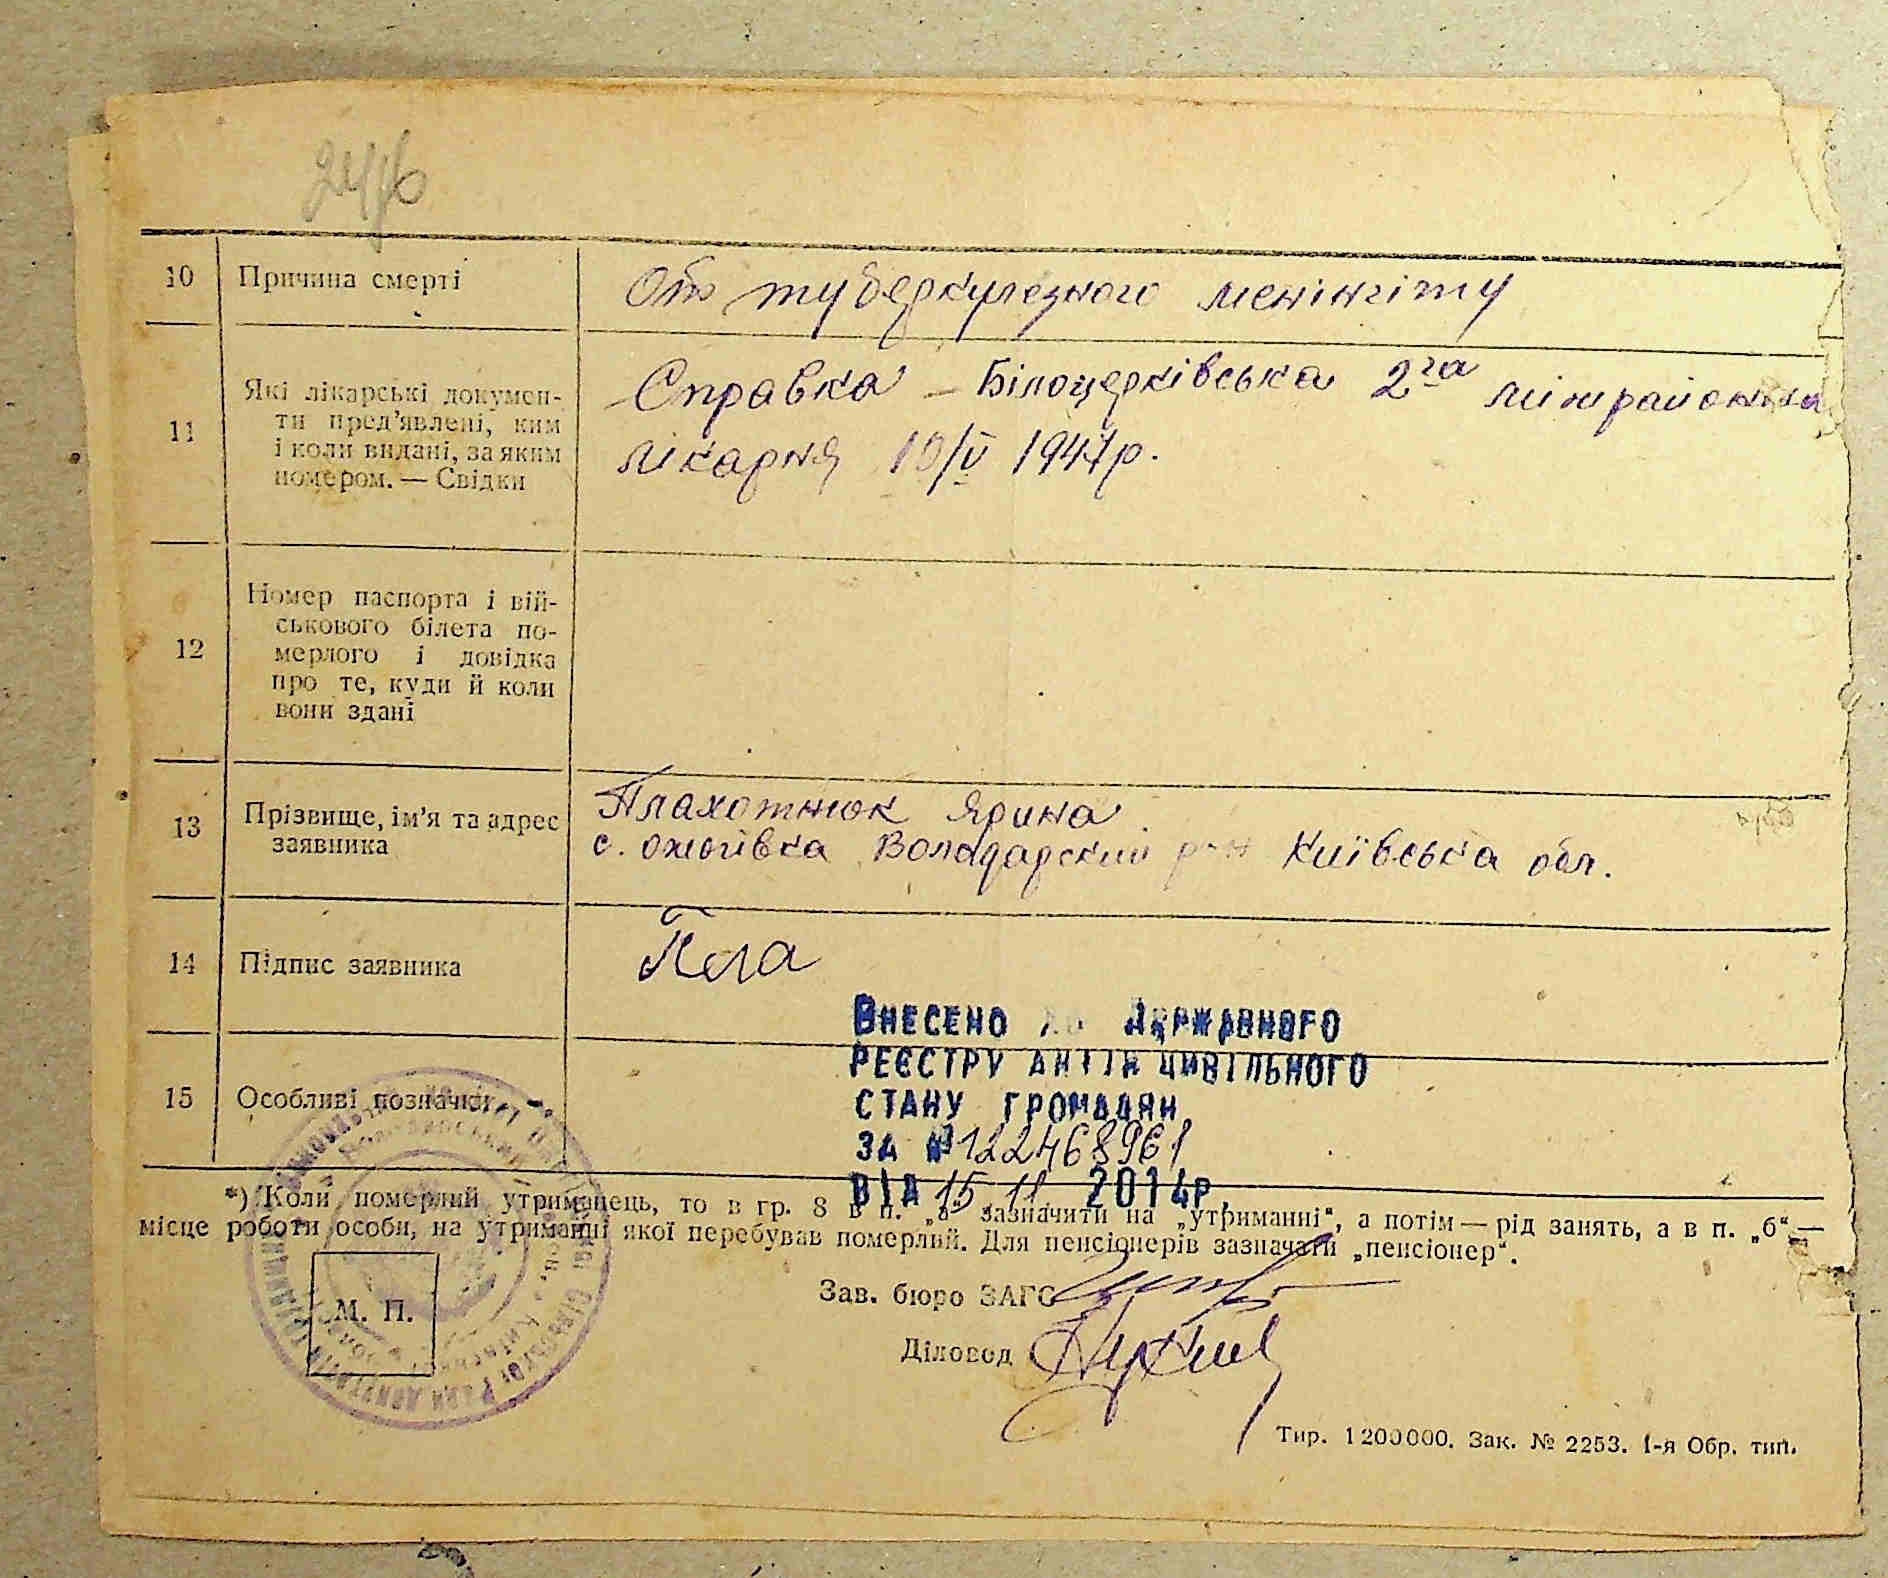 10 Причина смерті От туберкулезного менінгіту
11 Які лікарські докумен-
ти пред'явлені, ким
і коли видані, за яким
номером. — Свідки
Справка – Білоцерківська 2га міжрайонна
лікарня 10/V 1947р.
12 Номер паспорта і вій-
ськового білета по-
мерлого і довідка
про те, куди й коли
вони здані
13 Прізвище, ім'я та адрес
заявника
Плахотнюк Ярина
с. Ожогівка Володарский р-н Київська обл.
14 Підпис заявника Пла
Внесено до Державного
реєстру актів цивільного
стану громадян
за № 122468961
від 15.11 2014р.
15 Особливі позначки
*) Коли померлий утриманець, то в гр. 8 в п. „а“ зазначити на „утриманні“, а потім — рід занять, а в п. „б“ —
місце роботи особи, на утриманні якої перебував померлий. Для пенсіонерів зазначати „пенсіонер“.
М. П.
Зав. бюро ЗАГС
Діловод
Тир. 1200000. Зак. № 2253. 1-я Обр. тип.